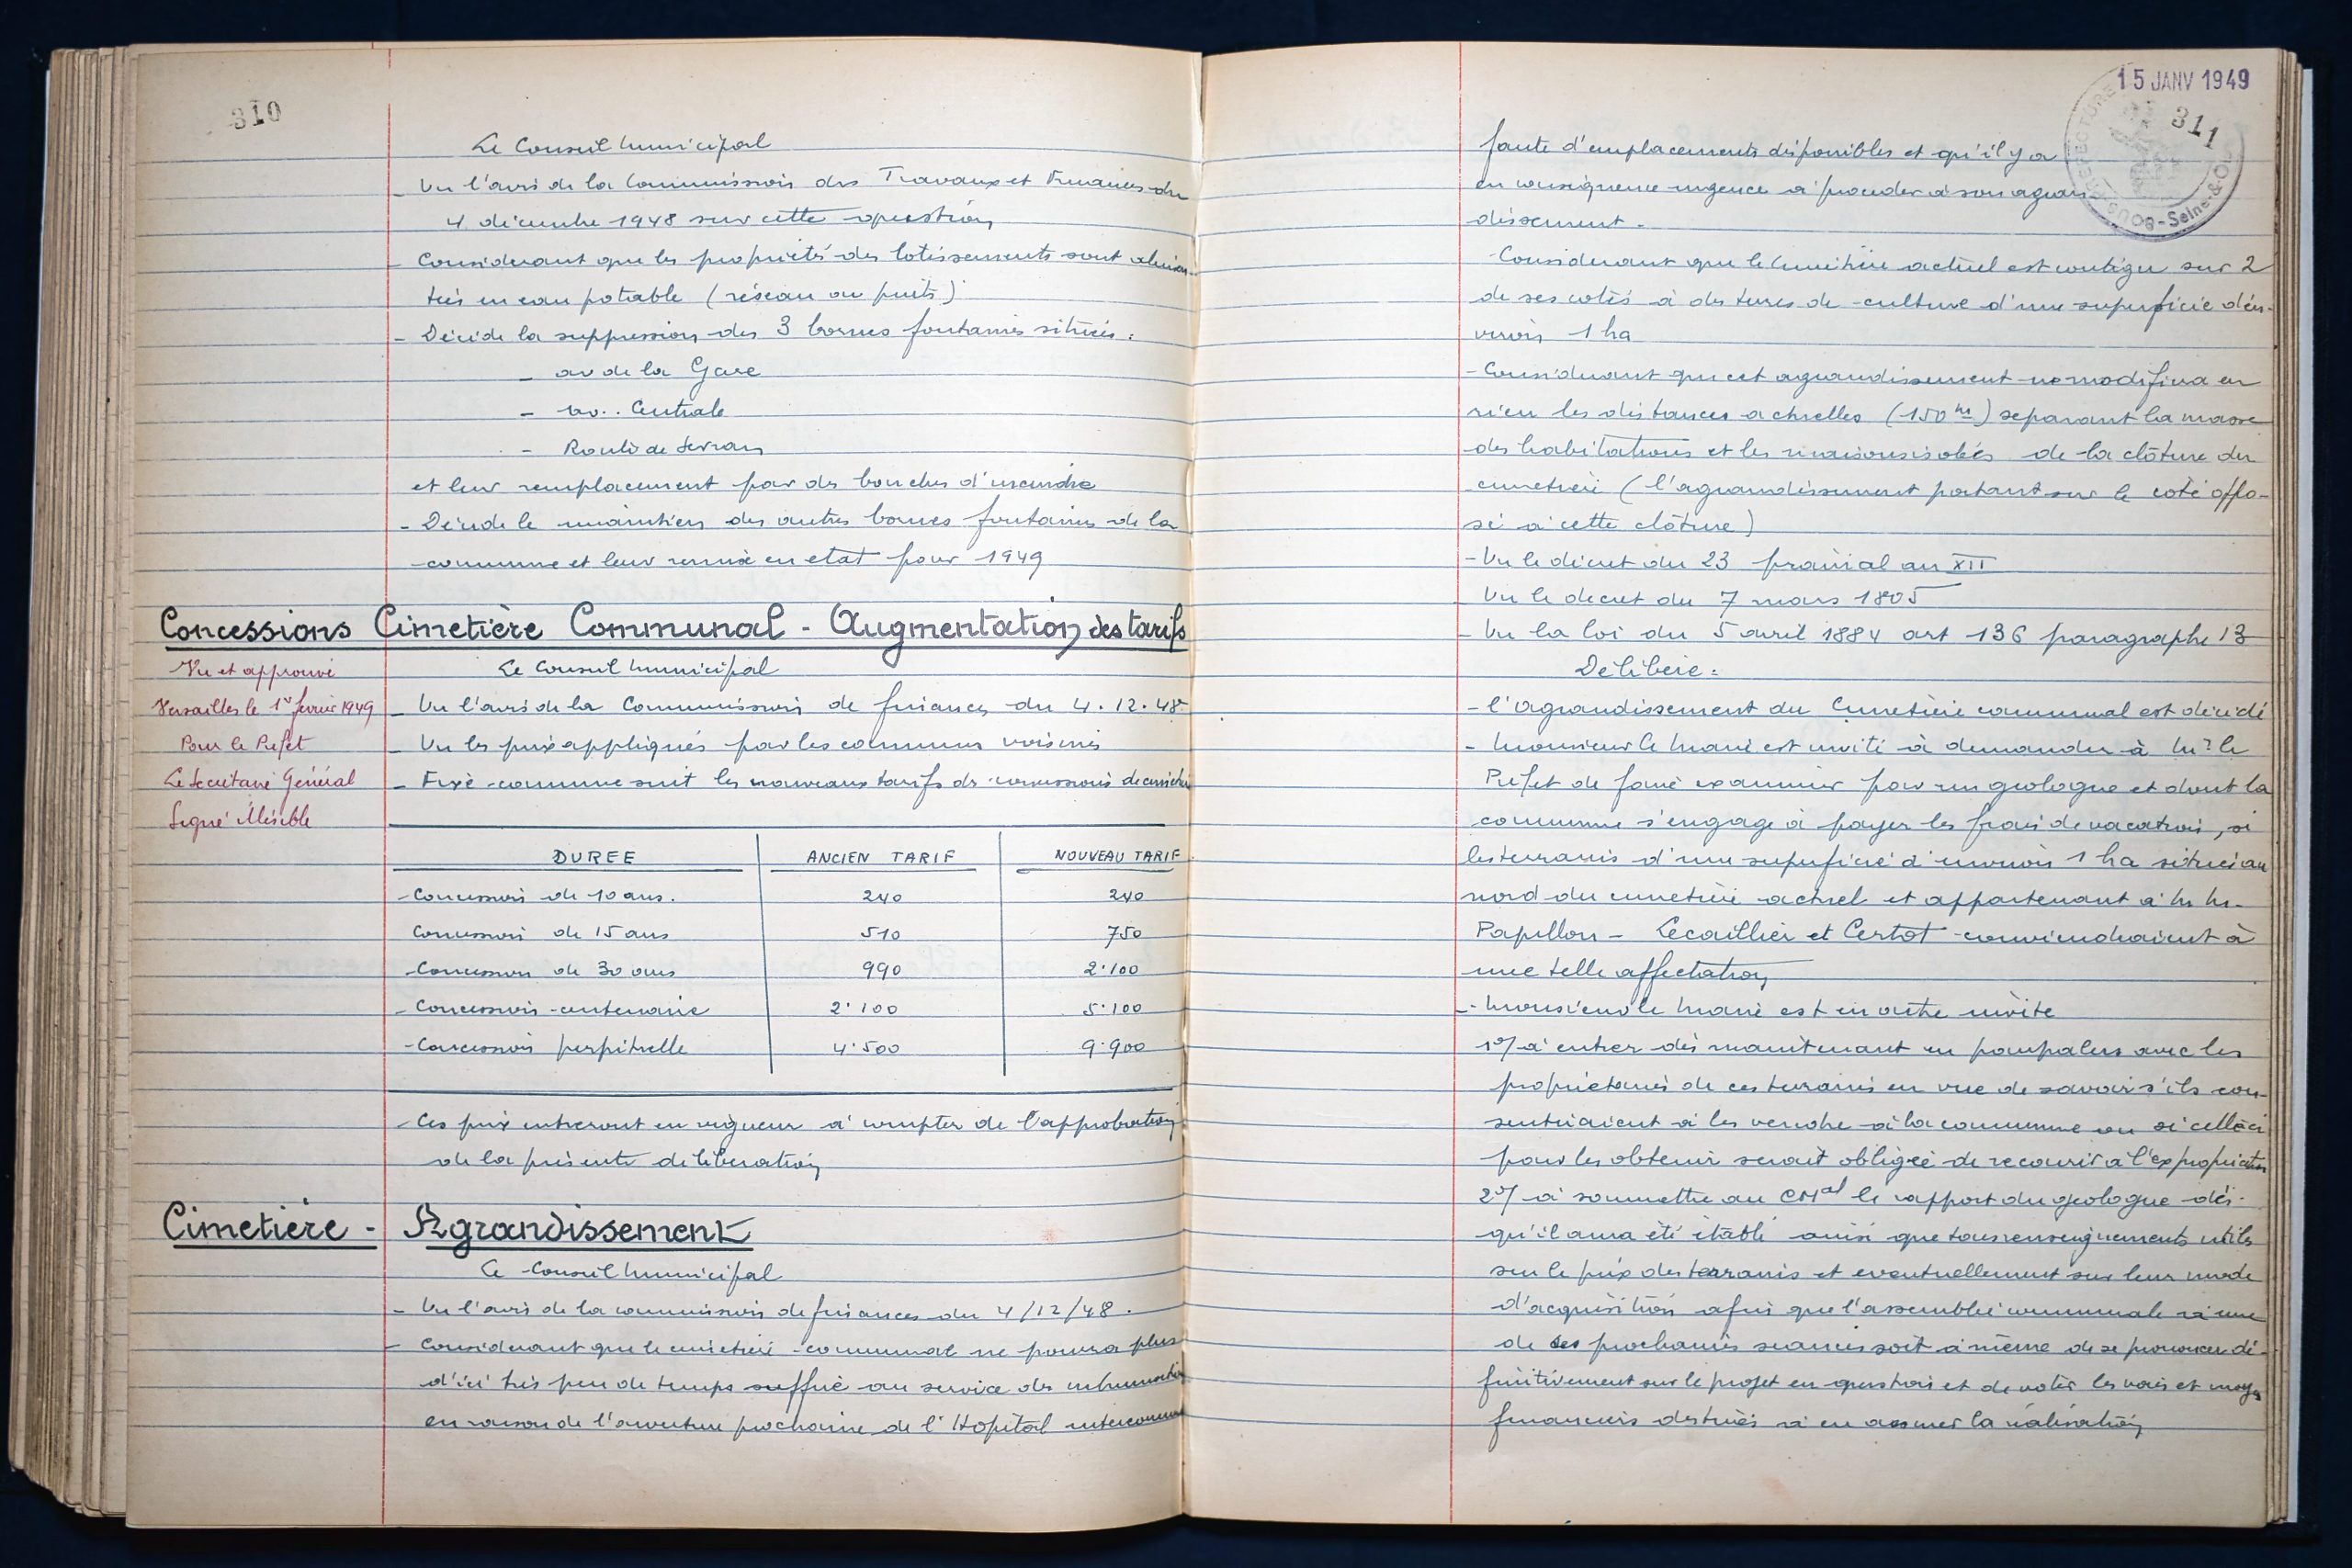 310
Le Conseil Municipal
- Vu l'avis de la Commission des Travaux et Finances du
4 décembre 1948 sur cette question
- Considerant que les propriétés des lotissements sont alimen-
tées en eau potable (réseau ou puits)
- Décide la suppression des 3 bornes fontaines situées :
- av de la Gare
- av.. Centrale
- Route de Sevran
et leur remplacement par des bouches d'incendie
- Décide le maintien des autres bornes fontaines de la
commune et leur remise en etat pour 1949
Concessions Cimetière Communal - Augmentation des tarifs
Vu et approuvé
Versailles le 1er fevrier 1949
Pour le Prefet
Le Secrétaire Général
Signé Illisible
Le Conseil Municipal
- Vu l'avis de la Commission de finances du 4.12.48
- Vu les prix appliqués par les communes voisines
- Fixe comme suit les nouveaux tarifs de concessions de cimetière
DUREE ANCIEN TARIF NOUVEAU TARIF
- Concession de 10 ans. 240 240
Concession de 15 ans 510 750
- Concession de 30 ans 990 2.100
- Concession centenaire 2.100 5.100
- Concession perpétuelle 4.500 9.900
- Ces prix entreront en vigueur à compter de l'approbation
de la présente déliberation
Cimetière - Agrandissement
Le Conseil Municipal
- Vu l'avis de la commission de finances du 4/12/48.
- Considerant que le cimetière communal ne pourra plus
d'ici très peu de temps suffire au service des inhumations
en raison de l'ouverture prochaine de l'Hopital intercommunal
15 JANV 1949
311
faute d'emplacements disponibles et qu'il y a
en conséquence urgence à proceder à son agran
dissement.
- Considerant que le Cimetière actuel est contigu sur 2
de ses cotés à des terres de culture d'une superficie d'en-
viron 1 ha
- Considerant que cet agrandissement ne modifiera en
rien les distances actuelles (150 m) separant la masse
des habitations et les maisons isolées de la clôture du
cimetière (l'agrandissement portant sur le coté oppo-
sé à cette clôture)
- Vu le décret du 23 prairial an XII
Vu le decret du 7 mars 1805
- Vu la loi du 5 avril 1884 art 136 paragraphe 13
Délibère :
- l'agrandissement du Cimetière communal est décidé
- Monsieur le Maire est invité à demander à Mr le
Prefet de faire examiner par un geologue et dont la
commune s'engage à payer les frais de vacation, si
les terrains d'une superficie d'environ 1 ha situés au
nord du cimetière actuel et appartenant à M M.
Papillon - Lecaillier et Certot conviendraient à
une telle affectation
- Monsieur le Maire est en outre invité
1°/ à entrer dès maintenant en pourpalers avec les
propriétaires de ces terrains en vue de savoir s'ils con-
sentiraient à les vendre à la commune ou si celle ci
pour les obtenir serait obligée de recourir à l'expropriation
2°/ à soumettre au CMal le rapport du géologue dés-
qu'il aura été établi ainsi que tous renseignements utiles
sur le prix des terrains et eventuellement sur leur mode
d'acquisition afin que l'assemblée communale à une
de ses prochaines seances soit à même de se prononcer dé-
finitivement sur le projet en question et de voter les voies et moyens
financiers destinés à en assurer la réalisation